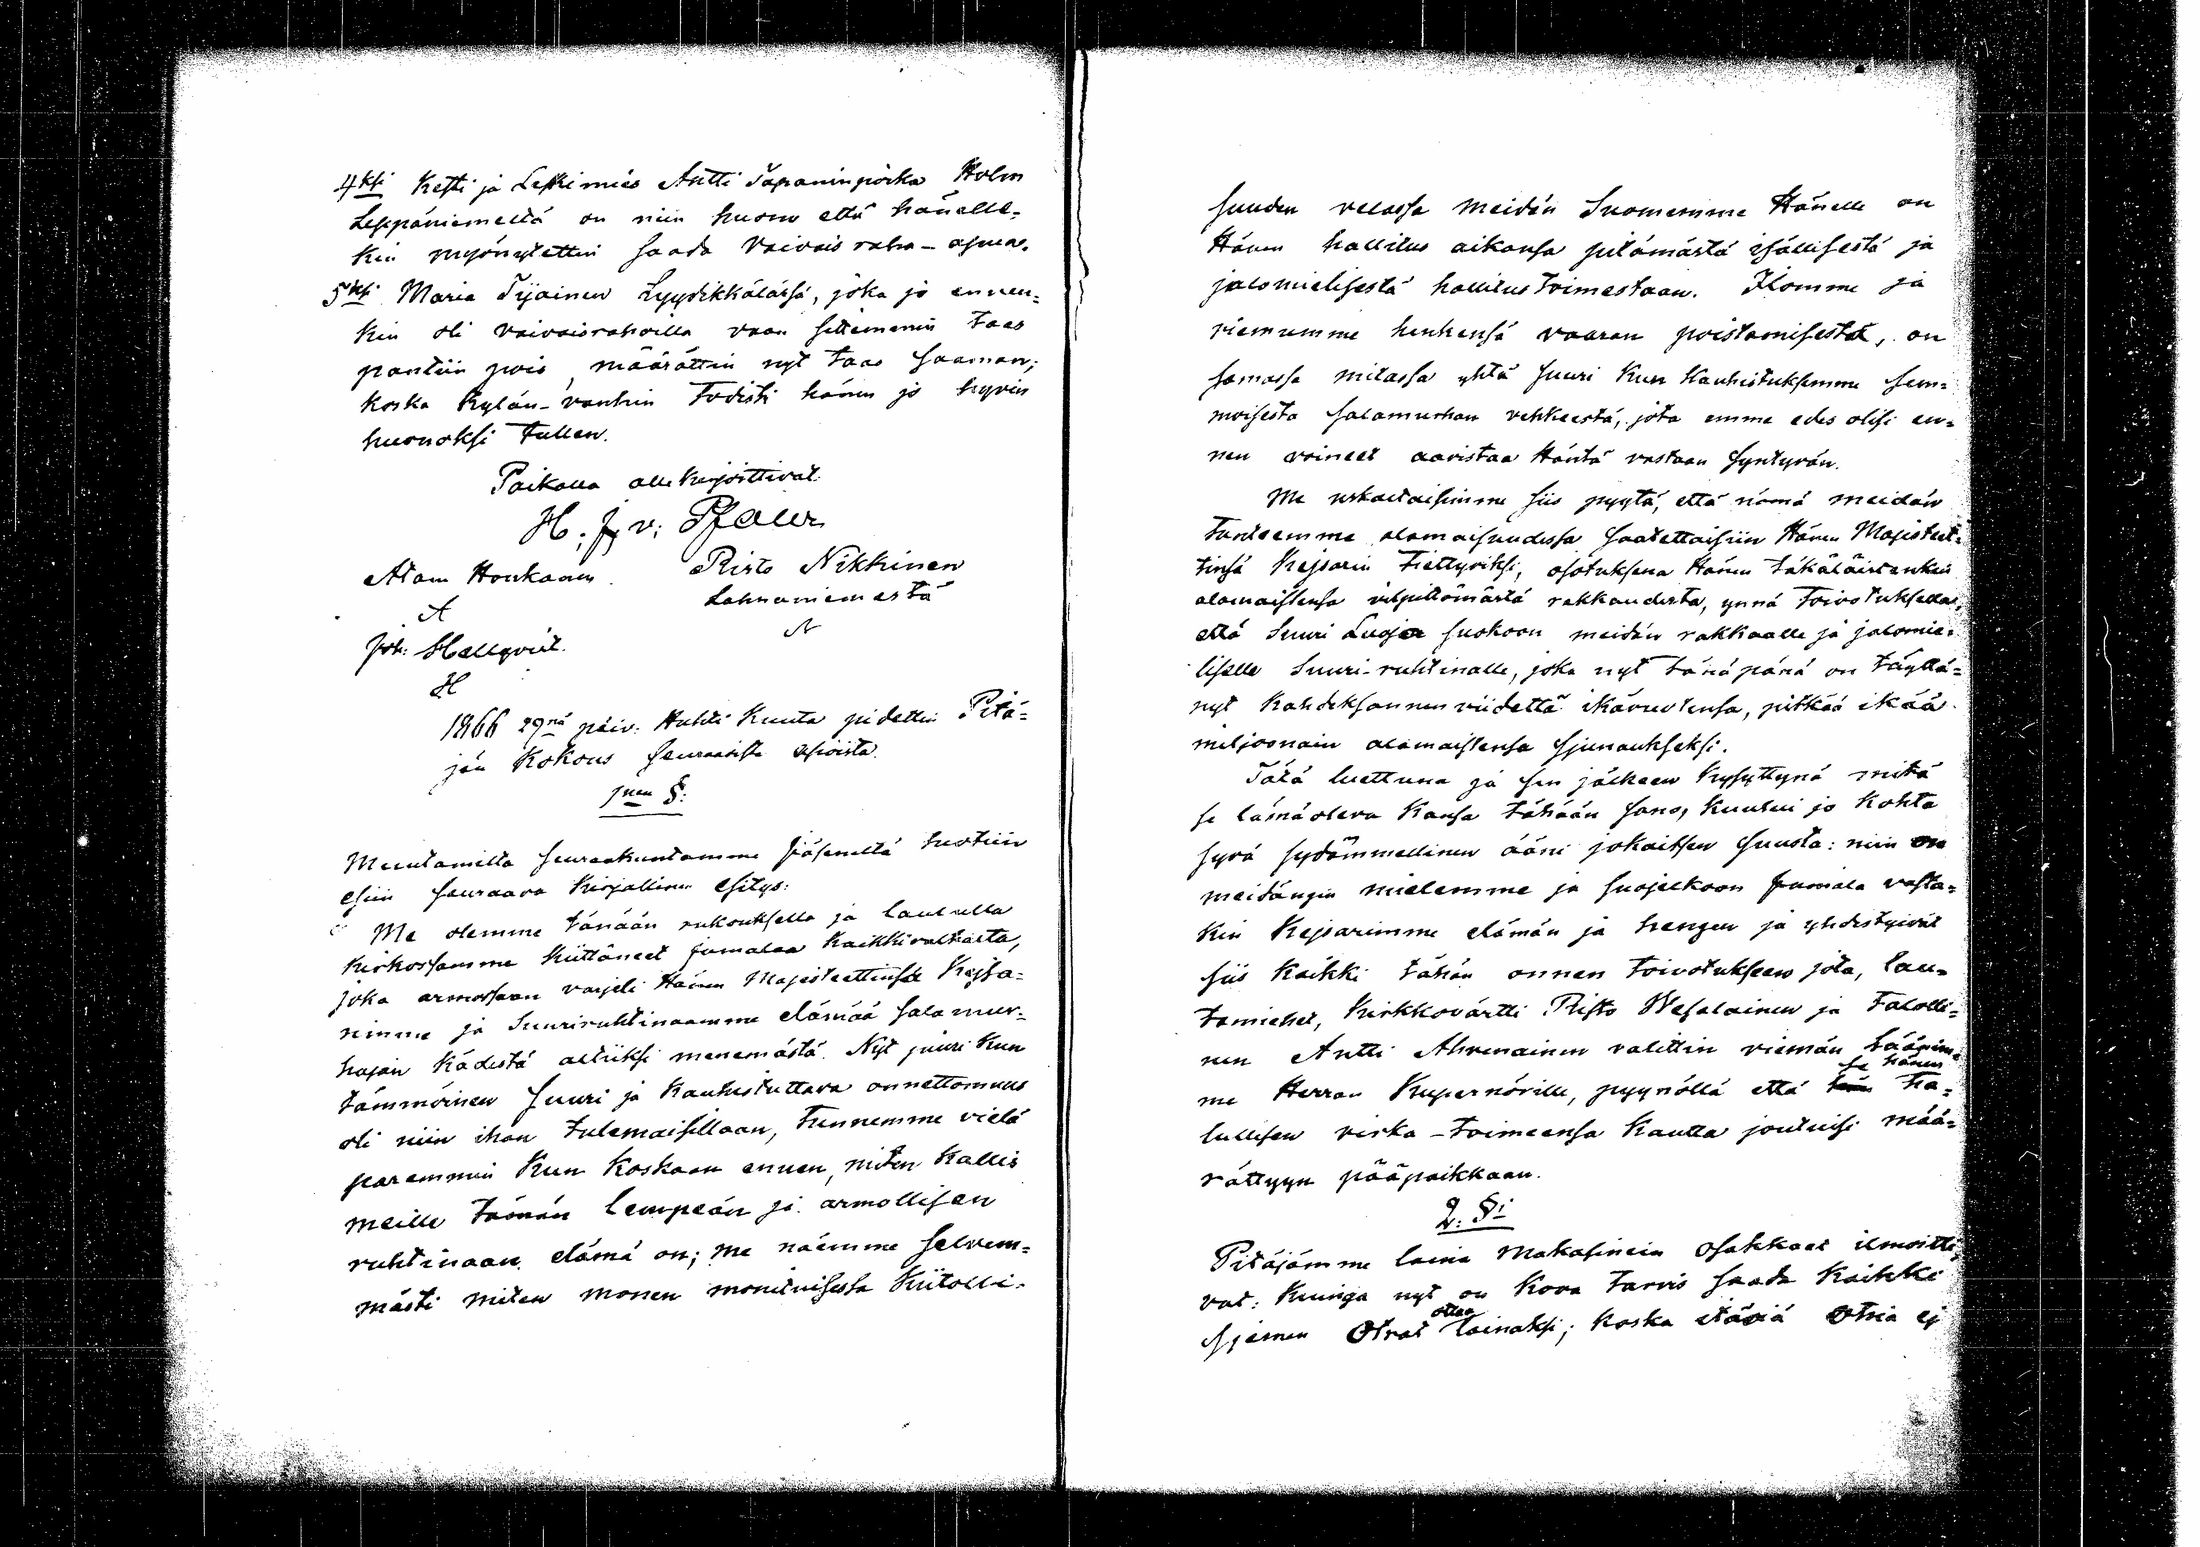 4ksi Kesti ja Leskimies Antti Tapaninpoika Holm
Leppäniemeltä on niin huono että hänelle-
kin myönytettin saada Vaivais raha-apua.
5ksi Maria Tijainen Lyydikkälässä, joka jo ennen=
kin oli vaivaisrahoilla vaan sittemmin taas
pantiin pois, määrättin nyt taas saaman;
koska Kylän-vanhin todisti hänen jo hyvin
huonoksi tullen.
Paikalla alle kirjoittivat.
H. J. v: Pfaler
Atam Honkanen Risto Nikkinen
A Lahnaniemestä
N
Joh: Hellqvist.
H
1866 29nä päiv: Huhti Kuuta pidettin Pitä-
jän Kokous seuraavista asioista.
1nen §:
Muutamilta seurakuntamme jäseneltä tuotiin
esiin seuraava kirjallinen esitys:
" Me olemme tänään rukouksella ja laululla
kirkossamme kiittäneet jumalaa kaikkivaltiasta,
joka armossaan varjeli Hänen Majesteettinsa Kejsa-
rimme ja Suuriruhtinaamme elämää sala mur-
hajan kädestä altiiksi menemästä. Nyt juuri kun
tämmöinen suuri ja kauhistuttava onnettomuus
oli niin ihan tulemaisillaan, tunnemme vielä
paremmin kun koskaan ennen, miten kallis
meille tämän lempeän ja armollisen
ruhtinaan elämä on; me näemme selvem=
mästi miten monen monituisessa kiitolli-
suuden velassa meidän Suomemme Hänelle on
Hänen hallitus aikansa pitämästä isällisestä ja
jalomielisestä hallitus toimestaan. Ilomme ja
riemumme henkensä vaaran poistamisesta, on
samassa mitassa yhtä suuri kun kauhistuksemme sem=
moisesta salamurhan vehkeestä, jota emme edes olisi en=
nen voineet aavistaa Häntä vastaan syntyvän.
Me uskaltaisimme siis pyytä, että nämä meidän
tunteemme alamaisuudessa saatettaisiin Hänen Majesteet=
tinsä Kejsarin tiettyviksi, osotuksena Hänen täkäläistenkin
alamaistensa vilpittömästä rakkaudesta, ynnä toivotuksella,
että Suuri Luoja suokoon meidän rakkaalle ja jalomie=
liselle Suuri-ruhtinalle, joka nyt tänäpänä on täyttä=
nyt kahdeksannen viidettä ikävuotensa, pitkää ikää
miljoonain alamaistensa siunaukseksi.
Tätä luettuna ja sen jälkeen kysyttynä mitä
se läsnäoleva kansa tähään sano, kuului jo kohta
syvä sydämmellinen ääni jokaitsen suusta: niin on
meidängin mielemme ja suojelkoon jumala vasta=
kin Kejsarimme elämän ja hengen ja yhdistyivät
siis kaikki tähän onnen toivotukseen jota, lau=
tamiehet, kirkkovärtti Risto Wesalainen ja talolli=
nen Antti Ahvenainen valittin viemän
me Herran Kupernörille, pyynöllä että se hänen ha=
lullisen virka-toimeensa kautta joutuisi mää=
rättyyn pääpaikkaan.
2. §:
Pitäjämme laina Makasinin osakkaat ilmoitti=
vat: kuinga nyt on kova tarvis saada kaikki
sjemen Otrat ottaa lainaksi; koska itäviä otria ej